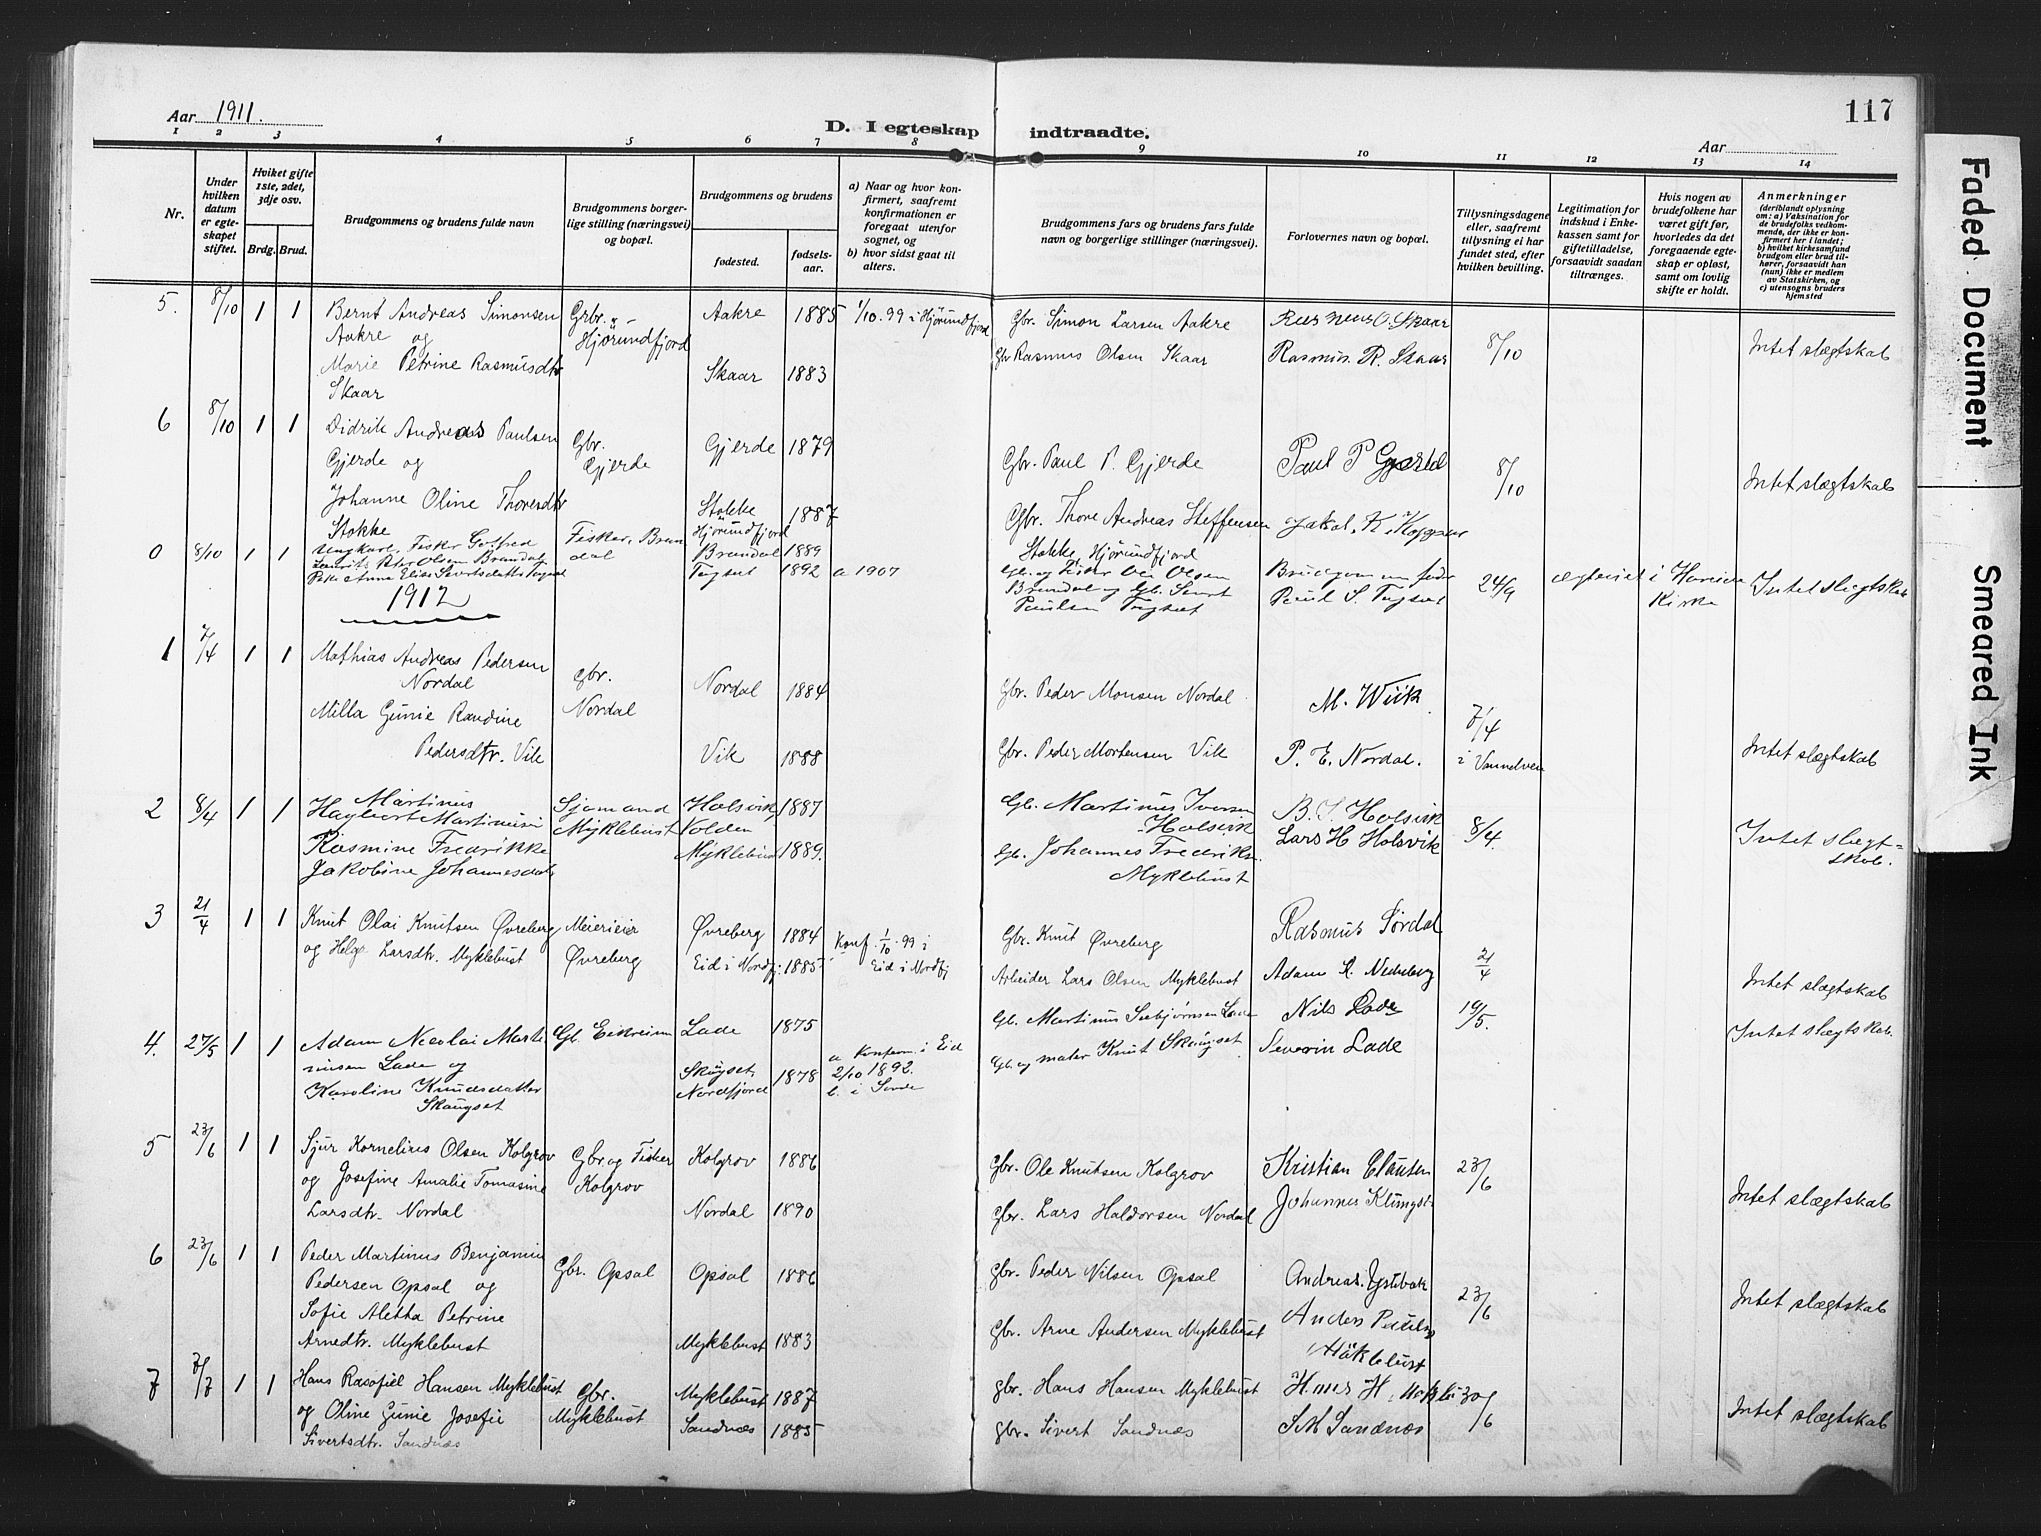 Aar 1911.
117
D. I egteskap indtraadte.
Aar
1 2 3 4 5 6 7 8 9 10 11 12 13 14
Nr.
Under hvilken datum er egteskapet stiftet.
Hviket gifte 1ste, 2det, 3dje osv.
Brdg. Brud.
Brudgommens og brudens fulde navn
Brudgommens borgerlige stilling (næringsvei) og bopæl.
Brudgommens og brudens
fødested.
fødselsaar.
a) Naar og hvor konfirmert, saafremt konfirmationen er foregaat utenfor sognet, og
b) hvor sidst gaat til alters.
Brudgommens fars og brudens fars fulde navn og borgerlige stillinger (næringsvei).
Forlovernes navn og bopæl.
Tillysningsdagene eller, saafremt tillysning ei har fundet sted, efter hvilken bevilling.
Legitimation for indskud i Enkekassen samt for giftetilladelse, forsaavidt saadan tiltrænges.
Hvis nogen av brudefolkene har været gift før, hvorledes da det foregaaende egteskap er opløst, samt om lovlig skifte er holdt.
Anmerkninger
(deriblandt oplysning om: a) Vaksination for de brudefolks vedkommende, der ikke er konfirmert her i landet; b) hvilket kirkesamfund brudgom eller brud tilhører, forsaavidt han (hun) ikke er medlem av Statskirken, og c) utensogns bruders hjemsted
5. 8/10 1 1 Bernt Andreas Simonsen Gbr. Aakre 1885 1/10.99 i Hjørundfjord Gbr. Simon Larsen Aakre Rasmus O. Skaar 8/10 Intet slægtskab
Aakre og Hjørundfjord
Marie Petrine Rasmusdtr Skaar 1883 Gbr Rasmus Olsen Skaar Rasmus R. Skaar
Skaar
6 8/10 1 1 Didrik Andreas Paulsen Gbr. Gjerde 1879 Gbr. Paul P. Gjerde Paul P Gjerde 8/10 Intet slægtskab
Gjerde og Gjerde
Johanne Oline Thoresdtr Stokke 1887 Gbr. Thore Andreas Steffensen
Stokke Hjørundfjord Stokke, Hjørundfjord
0 8/10 1 1 Ungkarl, Fisker Gotfred Fisker, Brandal Brandal 1889 24/9 Intet slegtskab
Laurits Peter Olsen Brandal
Pike Anna Elise Sivertsdatter
Brandal og Gb. Sivert Paul S.
1892 a 1907 Paulsen Kirke
1912
1 7/4 1 1 Mathias Andreas Pedersen Gbr. Nordal 1884 Gbr. Peder Monsen Nordal M. Wiik 7/4 i Vanndven Intet slægtskab
Nordal Nordal
Milla Gunie Randine
Pedersdtr. Vik Vik 1888 Gbr. Peder Mortensen Vik P. E. Nordal.
2 8/4 1 1 Hagbart Martinus Martinusen Sjømand Holsvik 1887 Gb. Martinus Iversen Holsvik B. I. Holsvik 8/4. Intet slegtskab.
Myklebust Volden Lars H Holsvik
Rasmine Fredrikke Myklebust 1889. Gb. Johannes Fredriks.
Jakobine Johannesdatr Myklebust
3 21/4 1 1 Knut Olai Knutsen Øvreberg Meierieier Øvreberg 1884 Konf. 1/10.99 i Eid i Nordfj Gbr. Knut Øvreberg Rasmus Sørdal 21/4 Intet slægtskab
og Helge Larsdtr. Myklebust Øvreberg Eid i Nordfj. 1885 Arbeider Lars Olsen Myklebust Adam K.
4. 27/5 1 1 Adam Nicolai Martinusen Lade og Gb. Eikreim Lade 1875 Gb. Martinus Sebjørnsen Lade Nils Lade 19/5. Intet slegtskab.
Karoline Knudsdatter Skaugset Nordfjord 1878 a Konfirm. i Eid 2/10 1892. Gb. og maler Knut Skaugset Severin Lade
Skaugset b. i Sande
5 23/6 1 1 Sjur Kornelius Olsen Kolgrov Gbr og Fisker Kolgrov 1886 Gbr. Ole Knutsen Kolgrov Kristian Clausen 23/6 Intet slægtskab
og Josefine Amalie Tomasine Kolgrov
Larsdtr. Nordal Nordal 1890 Gbr. Lars Haldorsen Nordal Johannes
6 23/6 1 1 Peder Martinus Benjamin Gbr. Opsal Opsal 1886 Gbr. Peder Nilsen Opsal Andreas 23/6 Intet slægtskab
Pedersen Opsal og
Sofie Aletha Petrine
Arnedtr. Myklebust Myklebust 1883 Gbr. Arne Andersen Myklebust Anders Paulsen
7 7/7 1 1 Hans Rasafiel Hansen Myklebust Gbr. Myklebust 1887 gbr. Hans Hansen Myklebust 30/6 Intet slægtskab
og Oline Gunie Josefie Myklebust Sandnæs 1885 gbr. Sivert Sandnæs S M Sandnæs
Sivertsdtr. Sandnæs
Faded Document
Smeared Ink